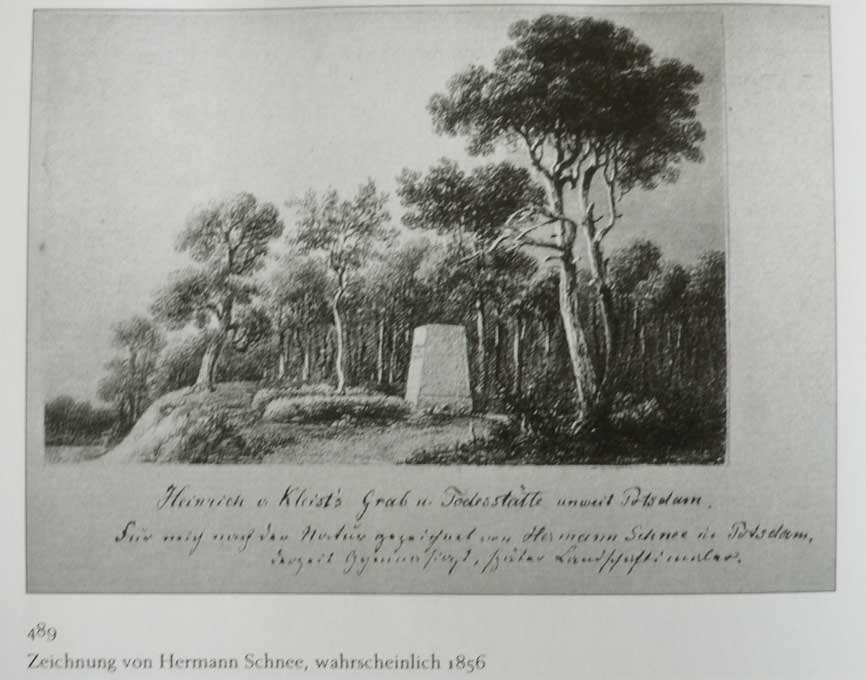 Heinrich v Kleist's Grab u. Todesstätte unweit Potsdam.
Für mich nach der Natur gezeichnet von Hermann Schnee in Potsdam,
derzeit Gymnasiast, später Landschaftsmaler.
489
Zeichnung von Hermann Schnee, wahrscheinlich 1856